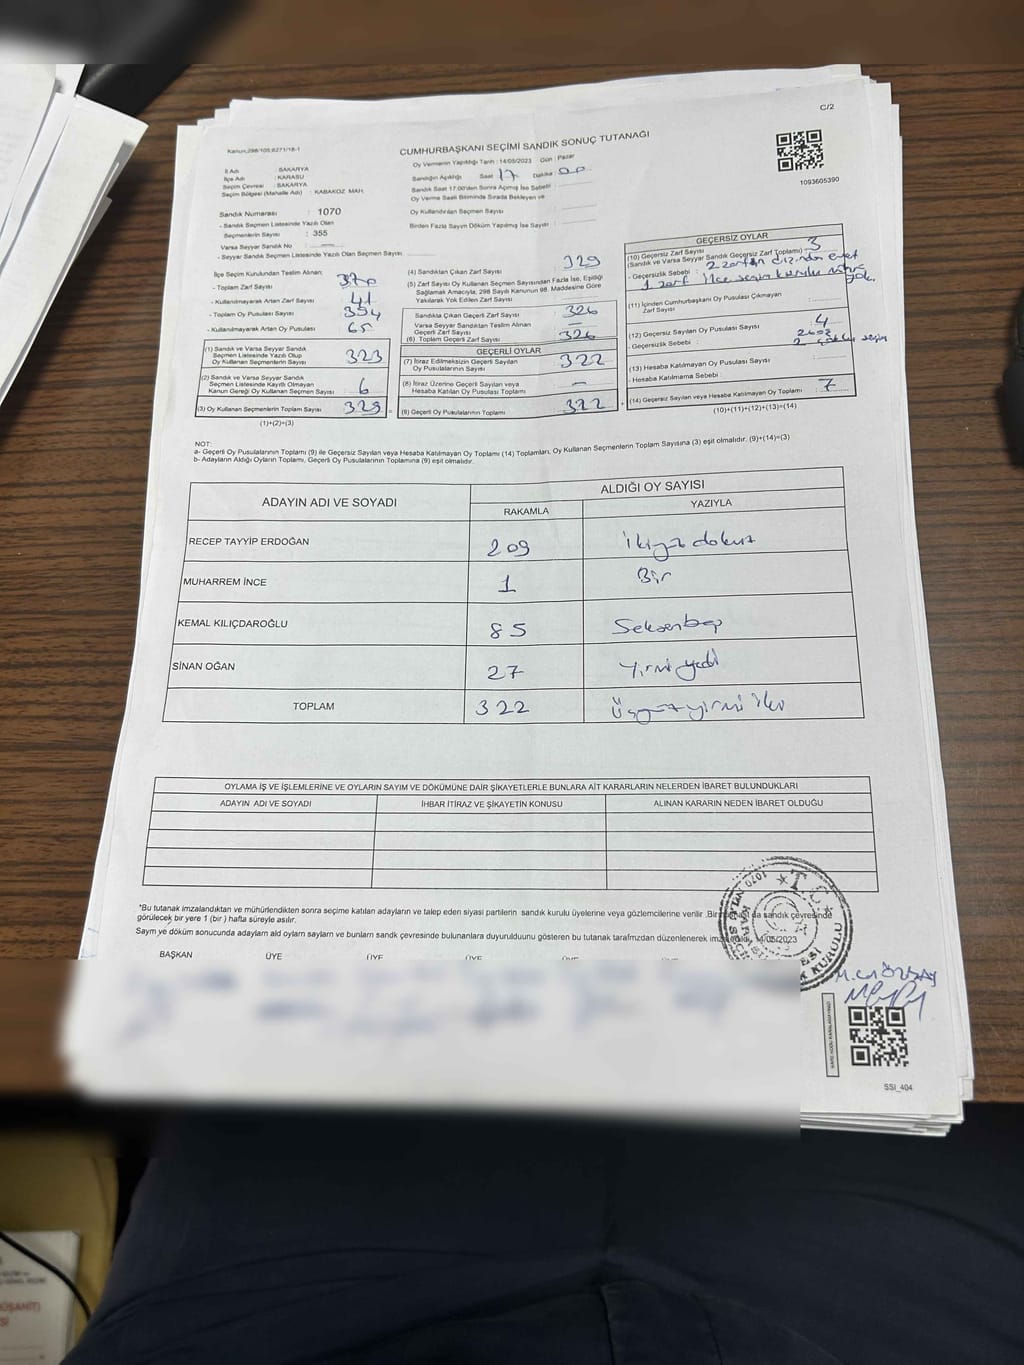 C/2
Kanun:298/105;6271/18-1
CUMHURBAŞKANI SEÇİMİ SANDIK SONUÇ TUTANAĞI
1093605390
Oy Vermenin Yapıldığı Tarih : 14/05/2023 Gün : Pazar
Sandığın Açıldığı Saat : 17 Dakika : 00
Sandık Saat 17.00'den Sonra Açılmış İse Sebebi :
Oy Verme Saati Bitiminde Sırada Bekleyen ve
Oy Kullandırılan Seçmen Sayısı :
Birden Fazla Sayım Döküm Yapılmış İse Sayısı :
İl Adı : SAKARYA
İlçe Adı : KARASU
Seçim Çevresi : SAKARYA
Seçim Bölgesi (Mahalle Adı) : KABAKOZ MAH.
Sandık Numarası : 1070
- Sandık Seçmen Listesinde Yazılı Olan
Seçmenlerin Sayısı : 355
Varsa Seyyar Sandık No :
- Seyyar Sandık Seçmen Listesinde Yazılı Olan Seçmen Sayısı :
İlçe Seçim Kurulundan Teslim Alınan;
- Toplam Zarf Sayısı : 370
- Kullanılmayarak Artan Zarf Sayısı : 41
- Toplam Oy Pusulası Sayısı : 394
- Kullanılmayarak Artan Oy Pusulası : 65
(1) Sandık ve Varsa Seyyar Sandık
Seçmen Listesinde Yazılı Olup
Oy Kullanan Seçmenlerin Sayısı 323
(2) Sandık ve Varsa Seyyar Sandık
Seçmen Listesinde Kayıtlı Olmayan
Kanun Gereği Oy Kullanan Seçmen Sayısı 6
(3) Oy Kullanan Seçmenlerin Toplam Sayısı 329
(1)+(2)=(3)
(4) Sandıktan Çıkan Zarf Sayısı : 329
(5) Zarf Sayısı Oy Kullanan Seçmen Sayısından Fazla İse, Eşitliği
Sağlamak Amacıyla, 298 Sayılı Kanunun 98. Maddesine Göre
Yakılarak Yok Edilen Zarf Sayısı :
Sandıkta Çıkan Geçerli Zarf Sayısı : 326
Varsa Seyyar Sandıktan Teslim Alınan
Geçerli Zarf Sayısı : —
(6) Toplam Geçerli Zarf Sayısı : 326
GEÇERLİ OYLAR
(7) İtiraz Edilmeksizin Geçerli Sayılan
Oy Pusulalarının Sayısı : 322
(8) İtiraz Üzerine Geçerli Sayılan veya
Hesaba Katılan Oy Pusulası Toplamı : —
(9) Geçerli Oy Pusulalarının Toplamı : 322
GEÇERSİZ OYLAR
(10) Geçersiz Zarf Sayısı
(Sandık ve Varsa Seyyar Sandık Geçersiz Zarf Toplamı) : 3
- Geçersizlik Sebebi : 2 zarfın evet
1 zarf İlçe seçim kurulu mührü yok.
(11) İçinden Cumhurbaşkanı Oy Pusulası Çıkmayan
Zarf Sayısı :
(12) Geçersiz Sayılan Oy Pusulası Sayısı : 4
- Geçersizlik Sebebi : 2
2 seçim
(13) Hesaba Katılmayan Oy Pusulası Sayısı :
- Hesaba Katılmama Sebebi :
(14) Geçersiz Sayılan veya Hesaba Katılmayan Oy Toplamı : 7
(10)+(11)+(12)+(13)=(14)
NOT:
a- Geçerli Oy Pusulalarının Toplamı (9) ile Geçersiz Sayılan veya Hesaba Katılmayan Oy Toplamı (14) Toplamları, Oy Kullanan Seçmenlerin Toplam Sayısına (3) eşit olmalıdır. (9)+(14)=(3)
b- Adayların Aldığı Oyların Toplamı, Geçerli Oy Pusulalarının Toplamına (9) eşit olmalıdır.
ADAYIN ADI VE SOYADI ALDIĞI OY SAYISI
RAKAMLA YAZIYLA
RECEP TAYYİP ERDOĞAN 209 İkiyüz dokuz
MUHARREM İNCE 1 Bir
KEMAL KILIÇDAROĞLU 85 Seksenbeş
SİNAN OĞAN 27 Yirmi yedi
TOPLAM 322 Üçyüz yirmi iki
OYLAMA İŞ VE İŞLEMLERİNE VE OYLARIN SAYIM VE DÖKÜMÜNE DAİR ŞİKAYETLERLE BUNLARA AİT KARARLARIN NELERDEN İBARET BULUNDUKLARI
ADAYIN ADI VE SOYADI İHBAR İTİRAZ VE ŞİKAYETİN KONUSU ALINAN KARARIN NEDEN İBARET OLDUĞU
*Bu tutanak imzalandıktan ve mühürlendikten sonra seçime katılan adayların ve talep eden siyasi partilerin sandık kurulu üyelerine veya gözlemcilerine verilir .Bir da sandık çevresinde
görülecek bir yere 1 (bir ) hafta süreyle asılır.
Sayım ve döküm sonucunda adayların aldı oyların sayları ve bunların sandk çevresinde bulunanlara duyurulduunu gösteren bu tutanak tarafımzdan düzenlenerek 14/05/2023
BAŞKAN ÜYE ÜYE ÜYE ÜYE
T.C.
1070
KURULU
SSI_404